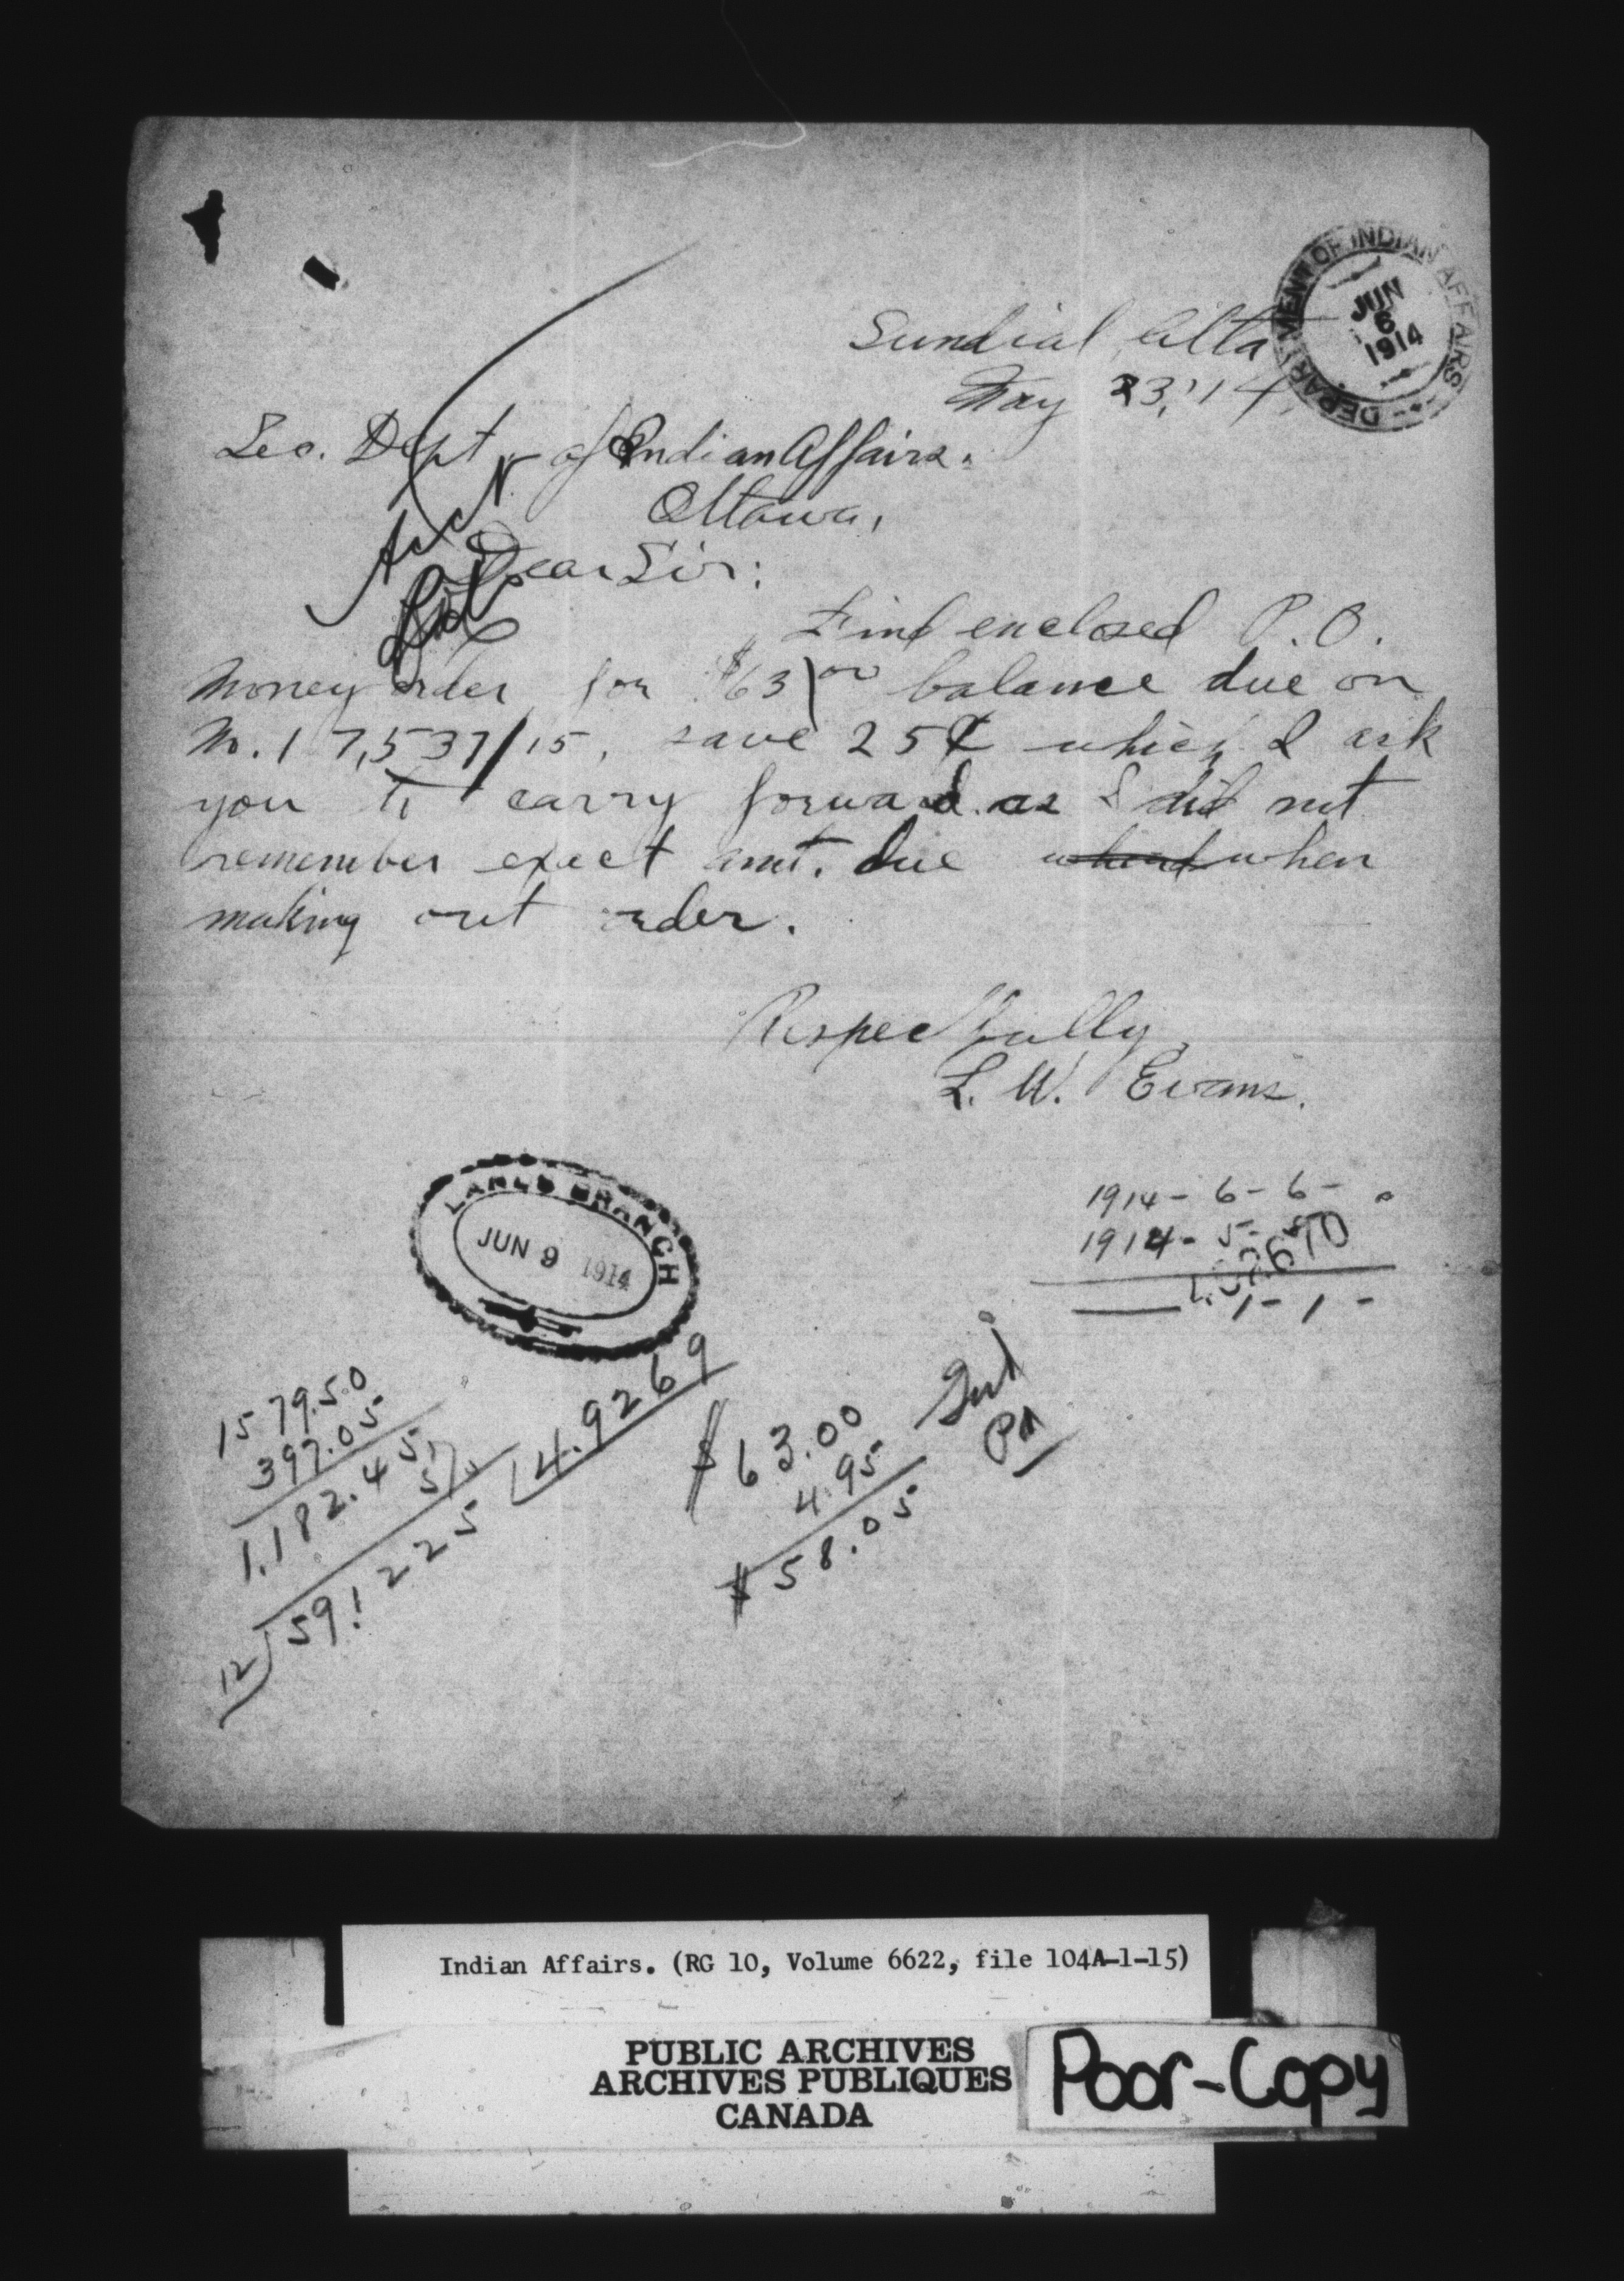 DEPARTMENT OF INDIAN AFFAIRS
JUN
6
1914
Sundial Alta
May 23, '14
Sec. Dept of Indian Affairs.
Ottawa,
Dear Sir:
Find enclosed P. O.
money order for $63 00 balance due on
No. 17,537/15, save 25¢ which I ask
you to carry forward as I did not
remember exact amt. due when
making out order.
Respectfully,
L. W. Evans.
LANDS BRANCH
JUN 9 1914
1914 - 6 - 6 -
1914 - 5 - 5
1 - 1 -
1579.50
397.05
1,182.45
5%
591225
12
4.9269
$63.00
4.95 Int
$58.05 Pd
Indian Affairs. (RG 10, Volume 6622, file 104A-1-15)
PUBLIC ARCHIVES
ARCHIVES PUBLIQUES
CANADA
Poor-Copy